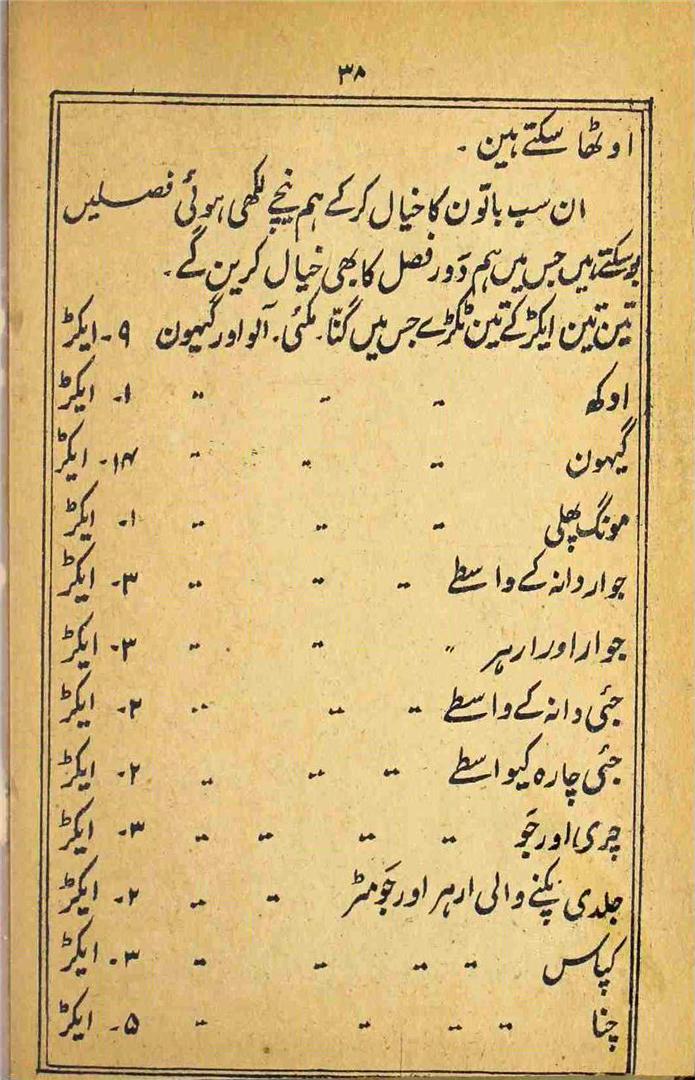 ۳۸
اوٹھا سکتے ہین ۔
ان سب باتون کا خیال کرکے ہم نیچے لکھی ہوئی فصلیں
بوسکتے ہیں جس میں ہم دَور فصل کا بھی خیال کرین گے ۔
تین تین ایکڑ کے تین ٹکڑے جس میں گنّا ۔ مکئی ۔ آلو اور گیہون ۹۔ ایکڑ
اوکھ ۱۔ ایکڑ
گیہون ۱۴۔ ایکڑ
مونگ پھلی ۱۔ ایکڑ
جوار دانہ کے واسطے ۳۔ ایکڑ
جوار اور ارہر ۳۔ ایکڑ
جئی دانہ کے واسطے ۲۔ ایکڑ
جئی چارہ کیواسطے ۲۔ ایکڑ
چری اور جَو ۳۔ ایکڑ
جلدی پکنے والی ارہر اور جَو مٹر ۲۔ ایکڑ
کپاس ۳۔ ایکڑ
چنا ۵۔ ایکڑ